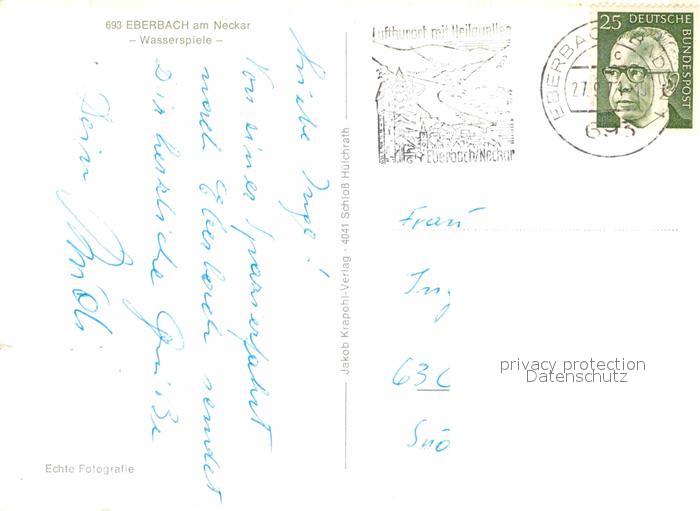 693 EBERBACH am Neckar
– Wasserspiele –
Liebe Inge!
Von einer Sparerfahrt
nach Eberbach sendet
Dir herzliche Grüße
Dein
Echte Fotografie
Jakob Krapohl-Verlag · 4041 Schloß Hülchrath
Luftkurort mit Heilquellen
Eberbach/Neckar
EBERBACH
693
25 DEUTSCHE
BUNDESPOST
Frau
Ing
privacy protection
Datenschutz